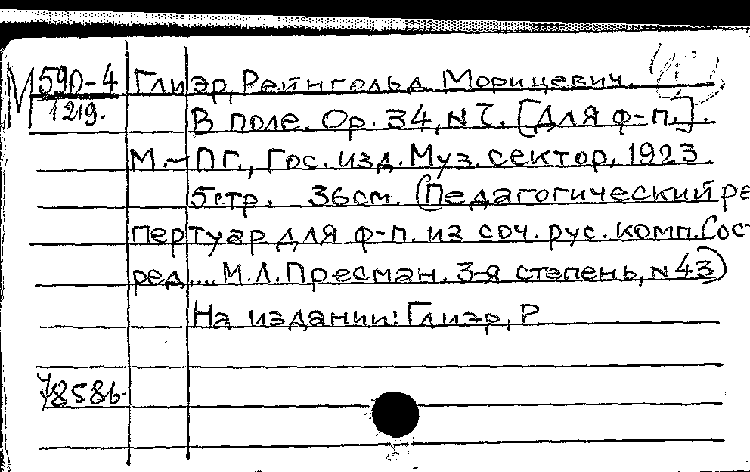 М 590-4 Глиэр, Рейнгольд Морицевич.
1219. В поле. Ор. 34, № 7. [Для ф-п.].
М.-ПГ., Гос. изд. Муз. сектор, 1923.
5 стр. 36 см. (Педагогический ре
пертуар для ф-п. из соч. рус. комп. Сост.
ред.... М.Л. Пресман. 3-я степень, № 43)
На издании: Глиэр, Р
78586.